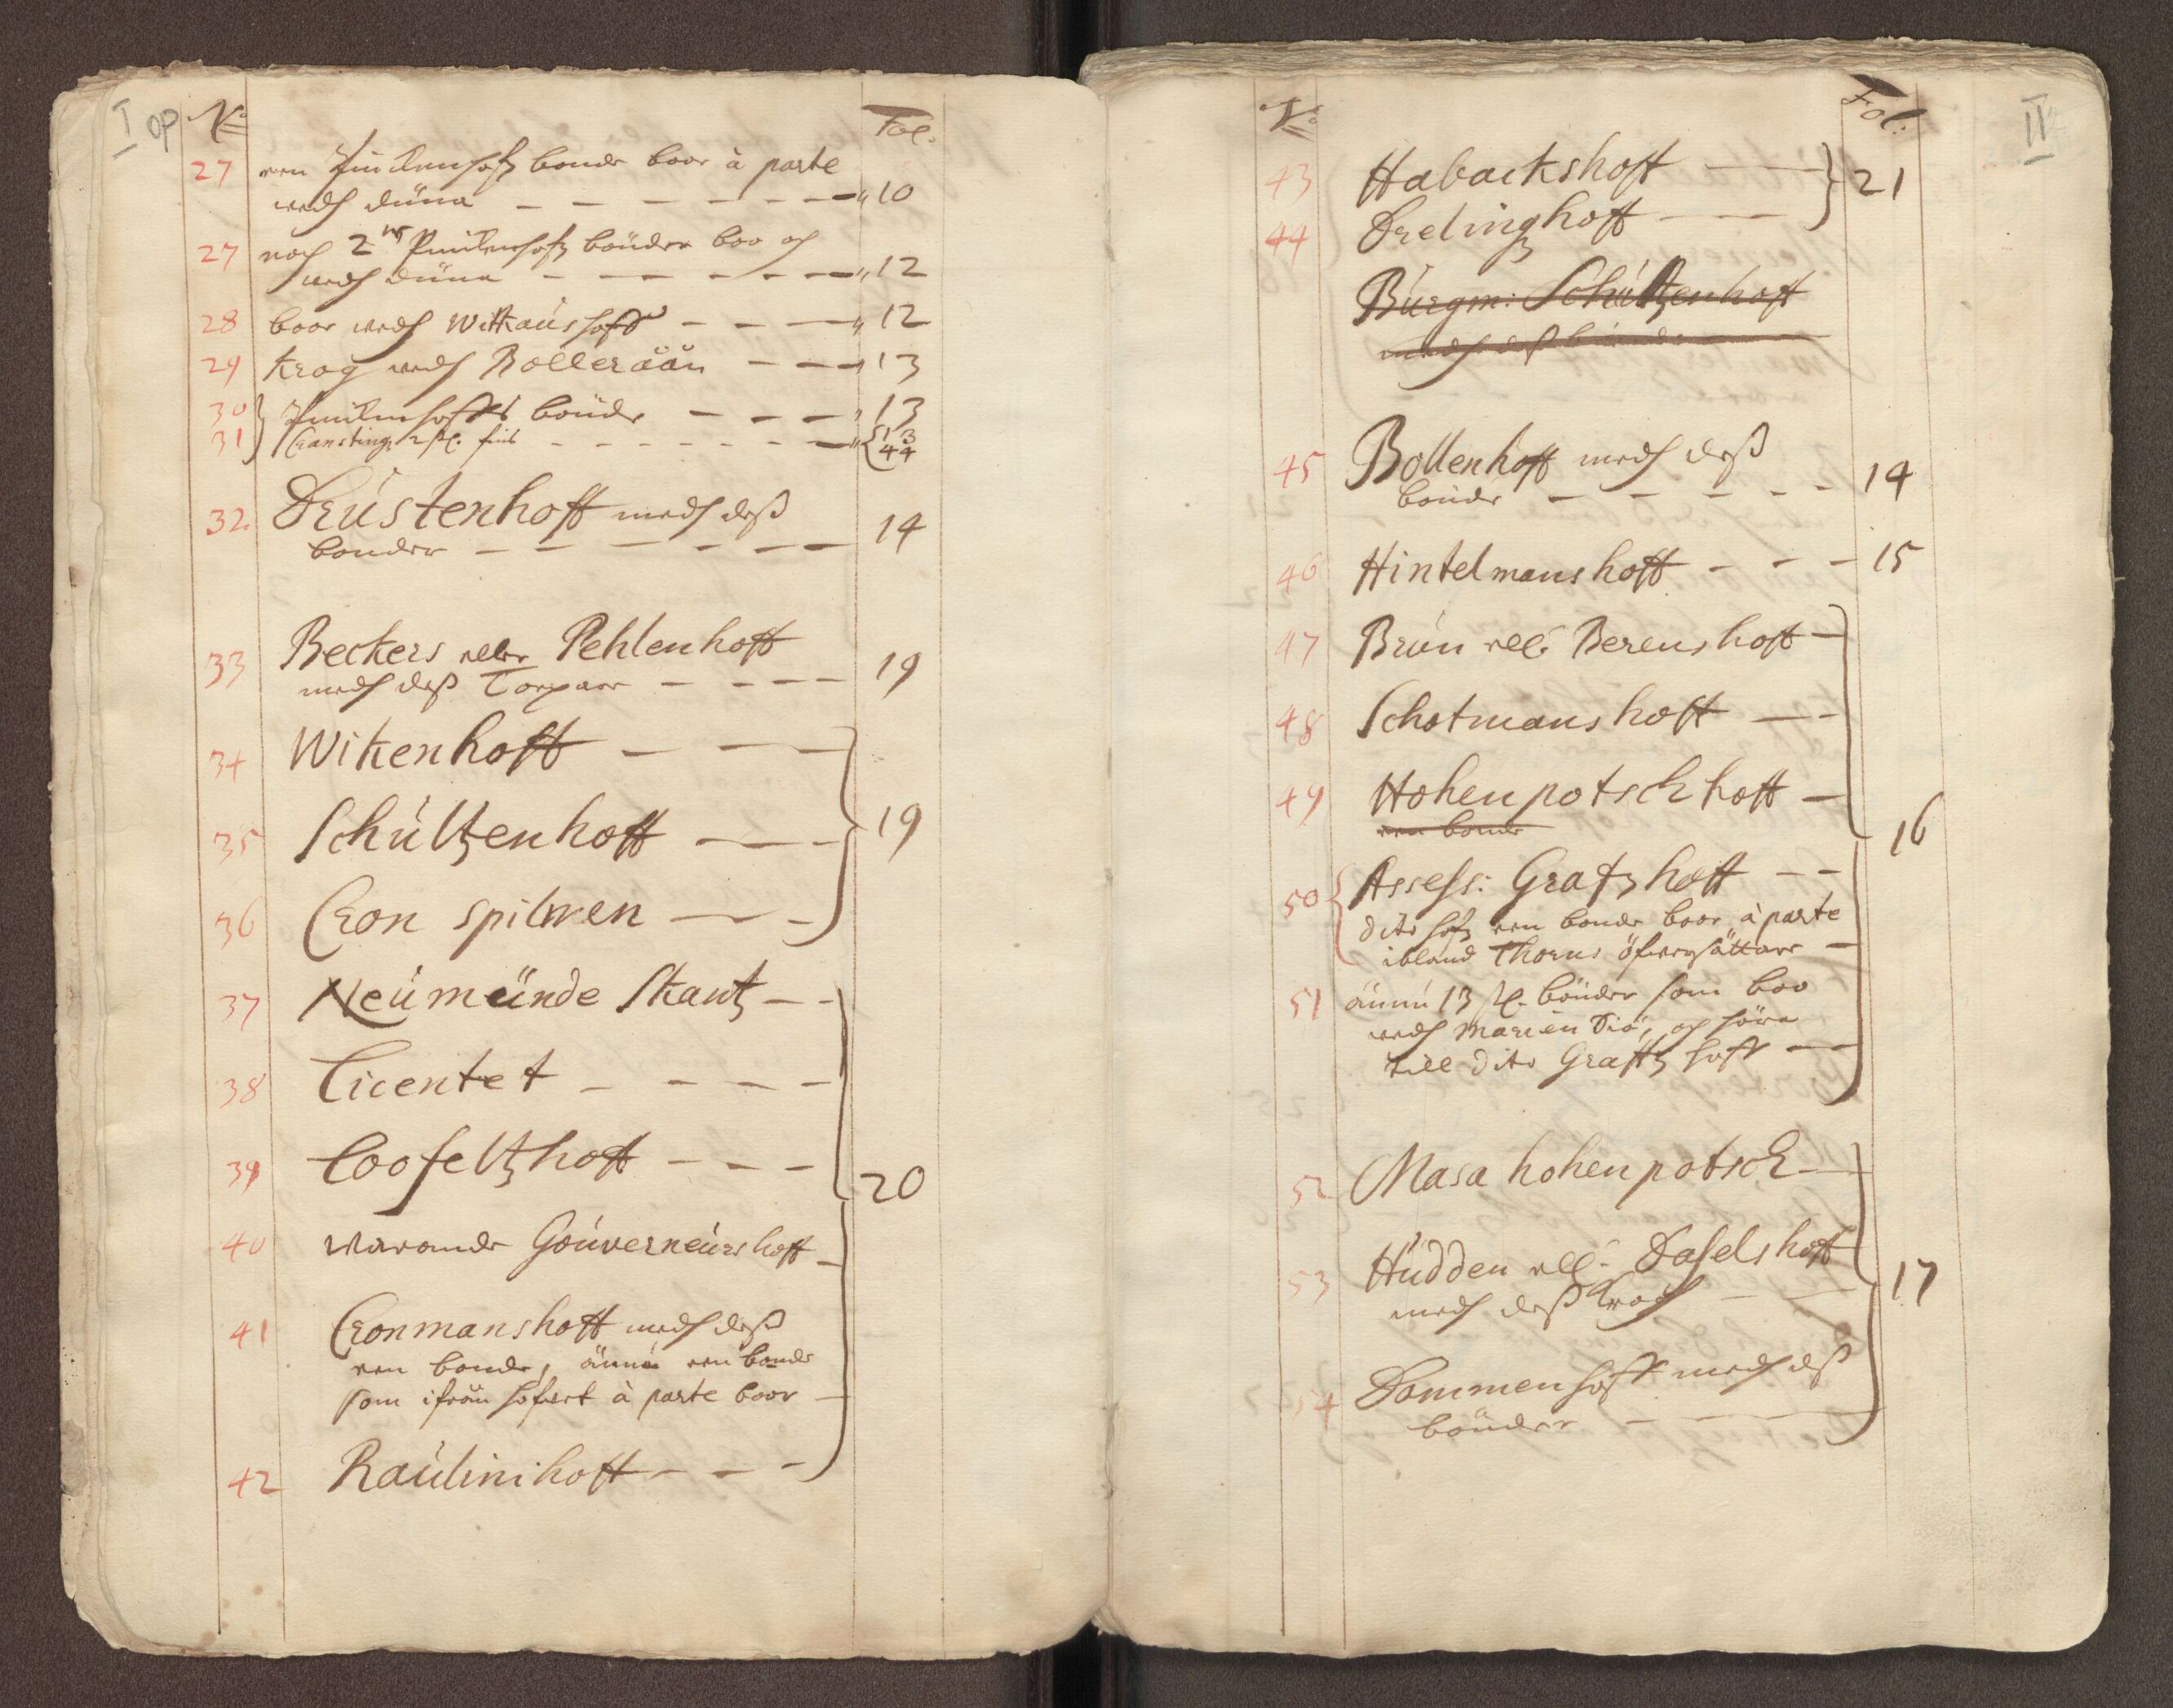 I op
No Fol.
27 een Pinkenhofz bonde boor à parte
wedh düna — — — — — — — 10
27 noch 2ne Pinkenhofz bönder boo och
wedh düna — — — — — — 12
28 boor wedh Wittkaushoff — — — 12
29 krog wedh Bolleråån — — — 13
30 Pinkenhoffs bönder — — — 13
31 Cransting 2 st. sins — — — — — — 13
44
32 Drústenhoff medh dess
bonder — — — — — — 14
33 Beckers eller Pehlenhoff
medh dess Torpare — — — — 19
34 Wikenhoff — — —
35 Schúltzenhoff — — 19
36 Cron spilwen — —
37 Neúmünde Skantz — —
38 Licentet — — — —
39 Coofeltzhoff — — —
20
40 warande Goúverneúrs hoff —
41 Cronmanshoff medh dess
een bonde, ännú een bonde
som ifrån hofwet à parte boor —
42 Raúlinihoff — — —
II
No Fol:
43 Habackshoff — 21
44 Drelingzhoff — —
Búrgm: Schúltzenhoff
medh dess bönder
45 Bollenhoff medh dess
bönder — — — — — 14
46 Hintelmanshoff — — — 15
47 Brún ell: Berenshoff —
48 Schotmanshoff — —
49 Hohenpotsch hoff —
een bonde
16
50 Assess: Grafz hoff — —
dito hofz een bonde boor à parte
ibland Thorns öfwersättare —
51 ännú 13 st. bönder som boo
wedh Marien Siö, och höra
till dito Graffz hoff —
52 Masa hohenpotsch —
53 Húdden ell: Daselshoff
medh dess krog — — 17
54 Dammenhoff medh dess
bönder — — —